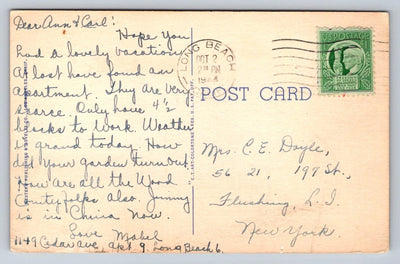 Dear Ann & Carl:
Hope you
had a lovely vacation,
At last have found an
apartment. They are very
scarce. Only have 4½
blocks to work. Weather
is grand today. How
did your garden turnout
How are all the Wood
County folks also. Jimmy
is in China now.
Love Mabel
1149 Cedar Ave, apt 9. Long Beach 6.
LONG BEACH
OCT 2
PM
U.S. POSTAGE
POST CARD
Mrs. C. E. Doyle,
56 21, 197 St.,
Flushing, L.I.
New York.